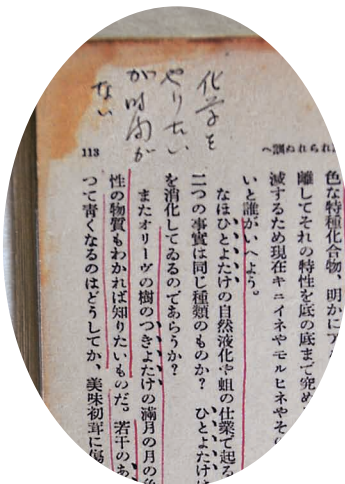 化学を
やりたい
が時間が
ない
113
色な特種化合物、明かに
離してそれの特性を底の底まで究め
滅するため現在キニイネやモルヒネやその
いと誰がいへよう。
なほひとよたけの自然液化や蛆の仕業で起る
二つの事實は同じ種類のものか? ひとよたけは
を消化してゐるのであらうか?
またオリーヴの樹のつきよたけの滿月の月の
性の物質もわかれば知りたいものだ。若干のあ
つて靑くなるのはどうしてか、美味初茸に傷